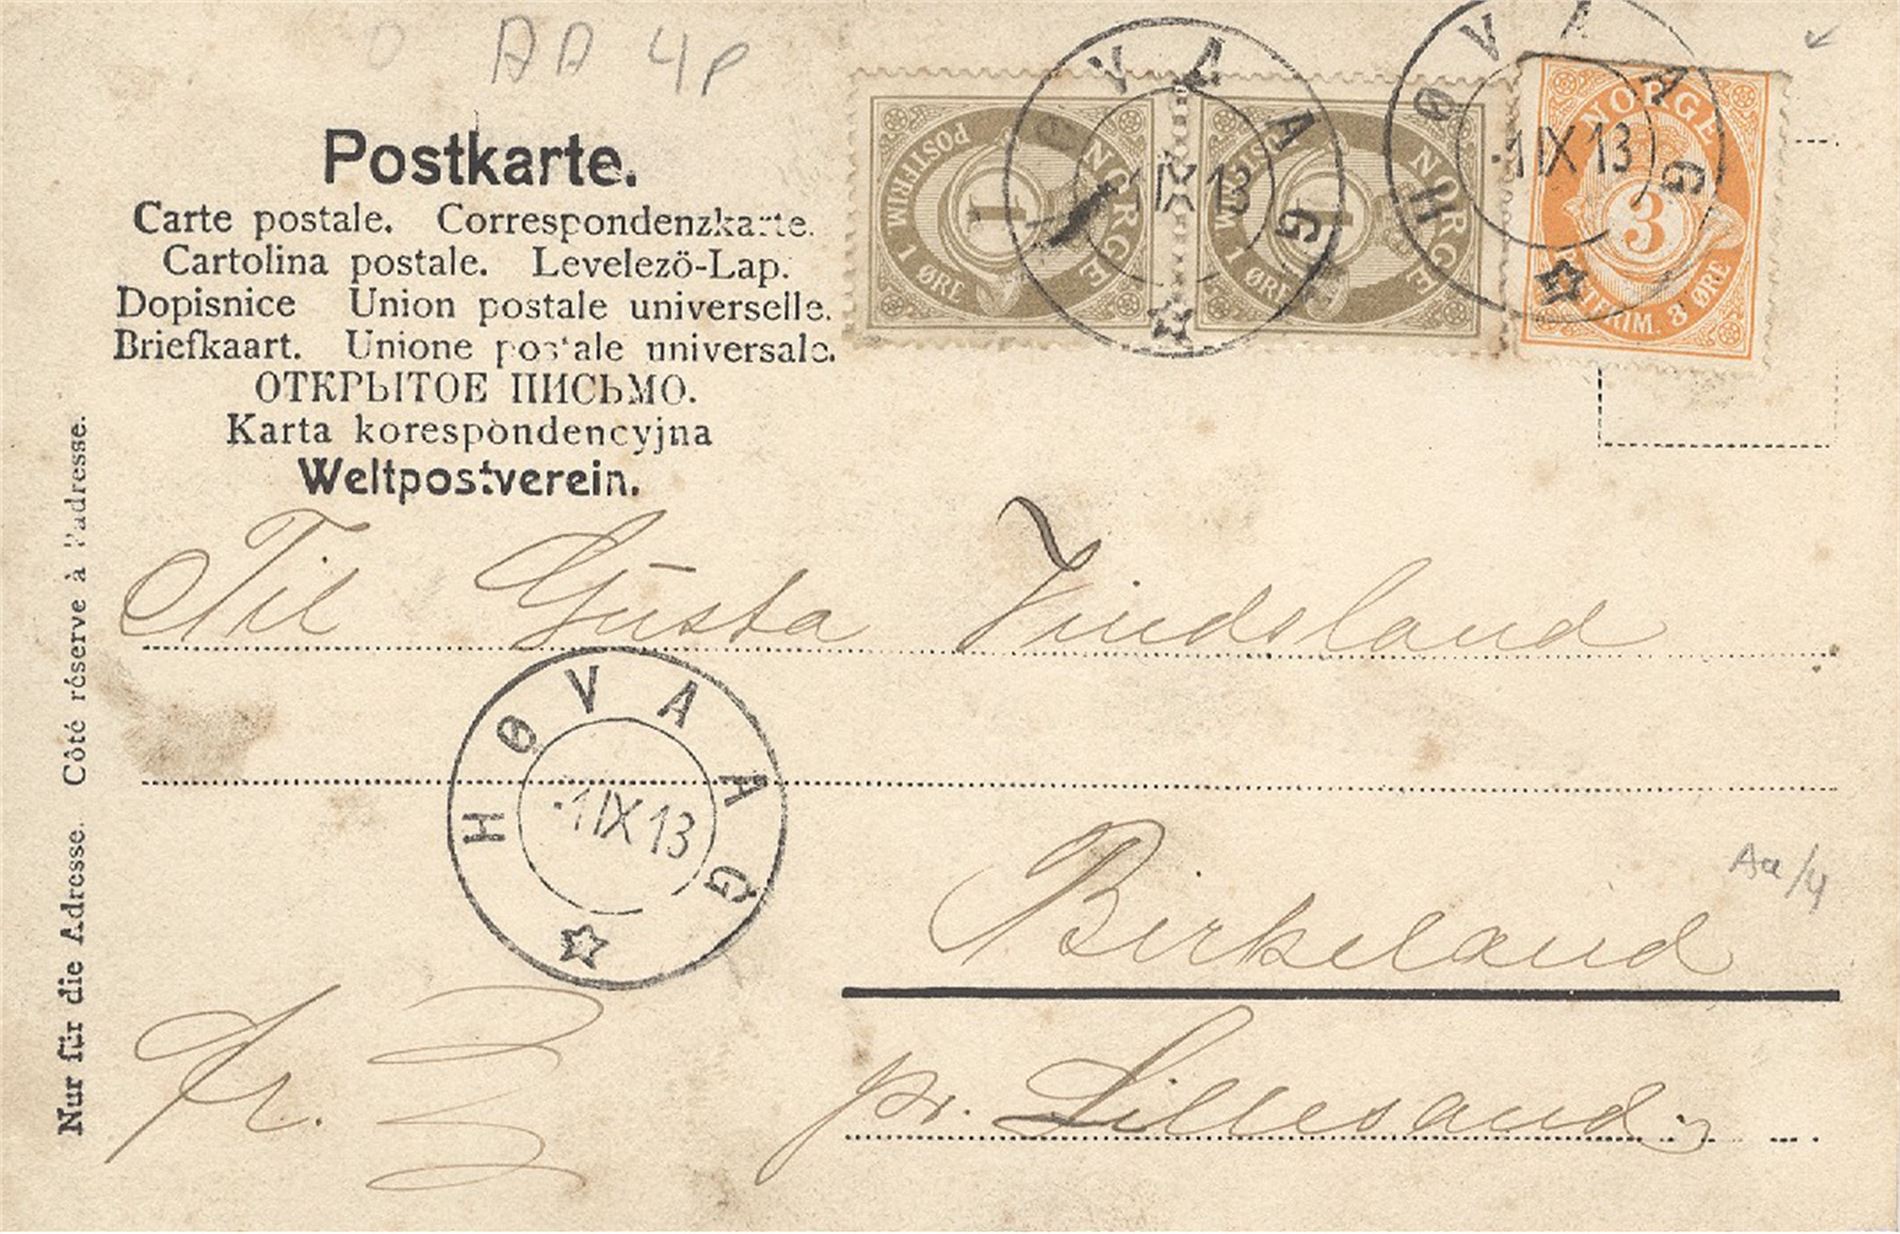 AA 4P
Postkarte.
Carte postale. Correspondenzkarte.
Cartolina postale. Levelezö-Lap.
Dopisnice Union postale universelle.
Briefkaart. Unione postale universale.
ОТКРЫТОЕ ПИСЬМО.
Karta korespondencyjna
Weltpostverein.
NORGE
POSTFRIM 1 ØRE
1
NORGE
1 ØRE
1
NORGE
3
3 ØRE
HØVAAG
1 IX 13
HØVAAG
1 IX 13
Til Gusta Vindsland
HØVAAG
1 IX 13
Birkeland
Aa/4
Fr.
pr. Lillesand
Nur für die Adresse. Côté réservé à l'adresse.